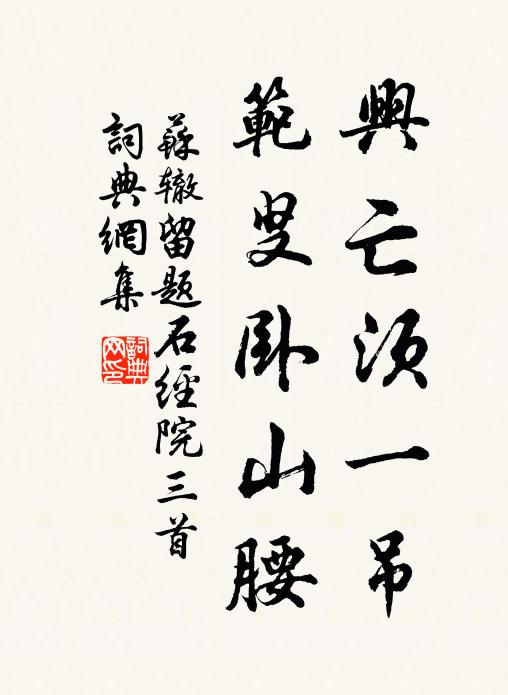 興亡須一吊
範叟卧山腰
蘇辙留題石經院三首
詞典網集
詞典网印